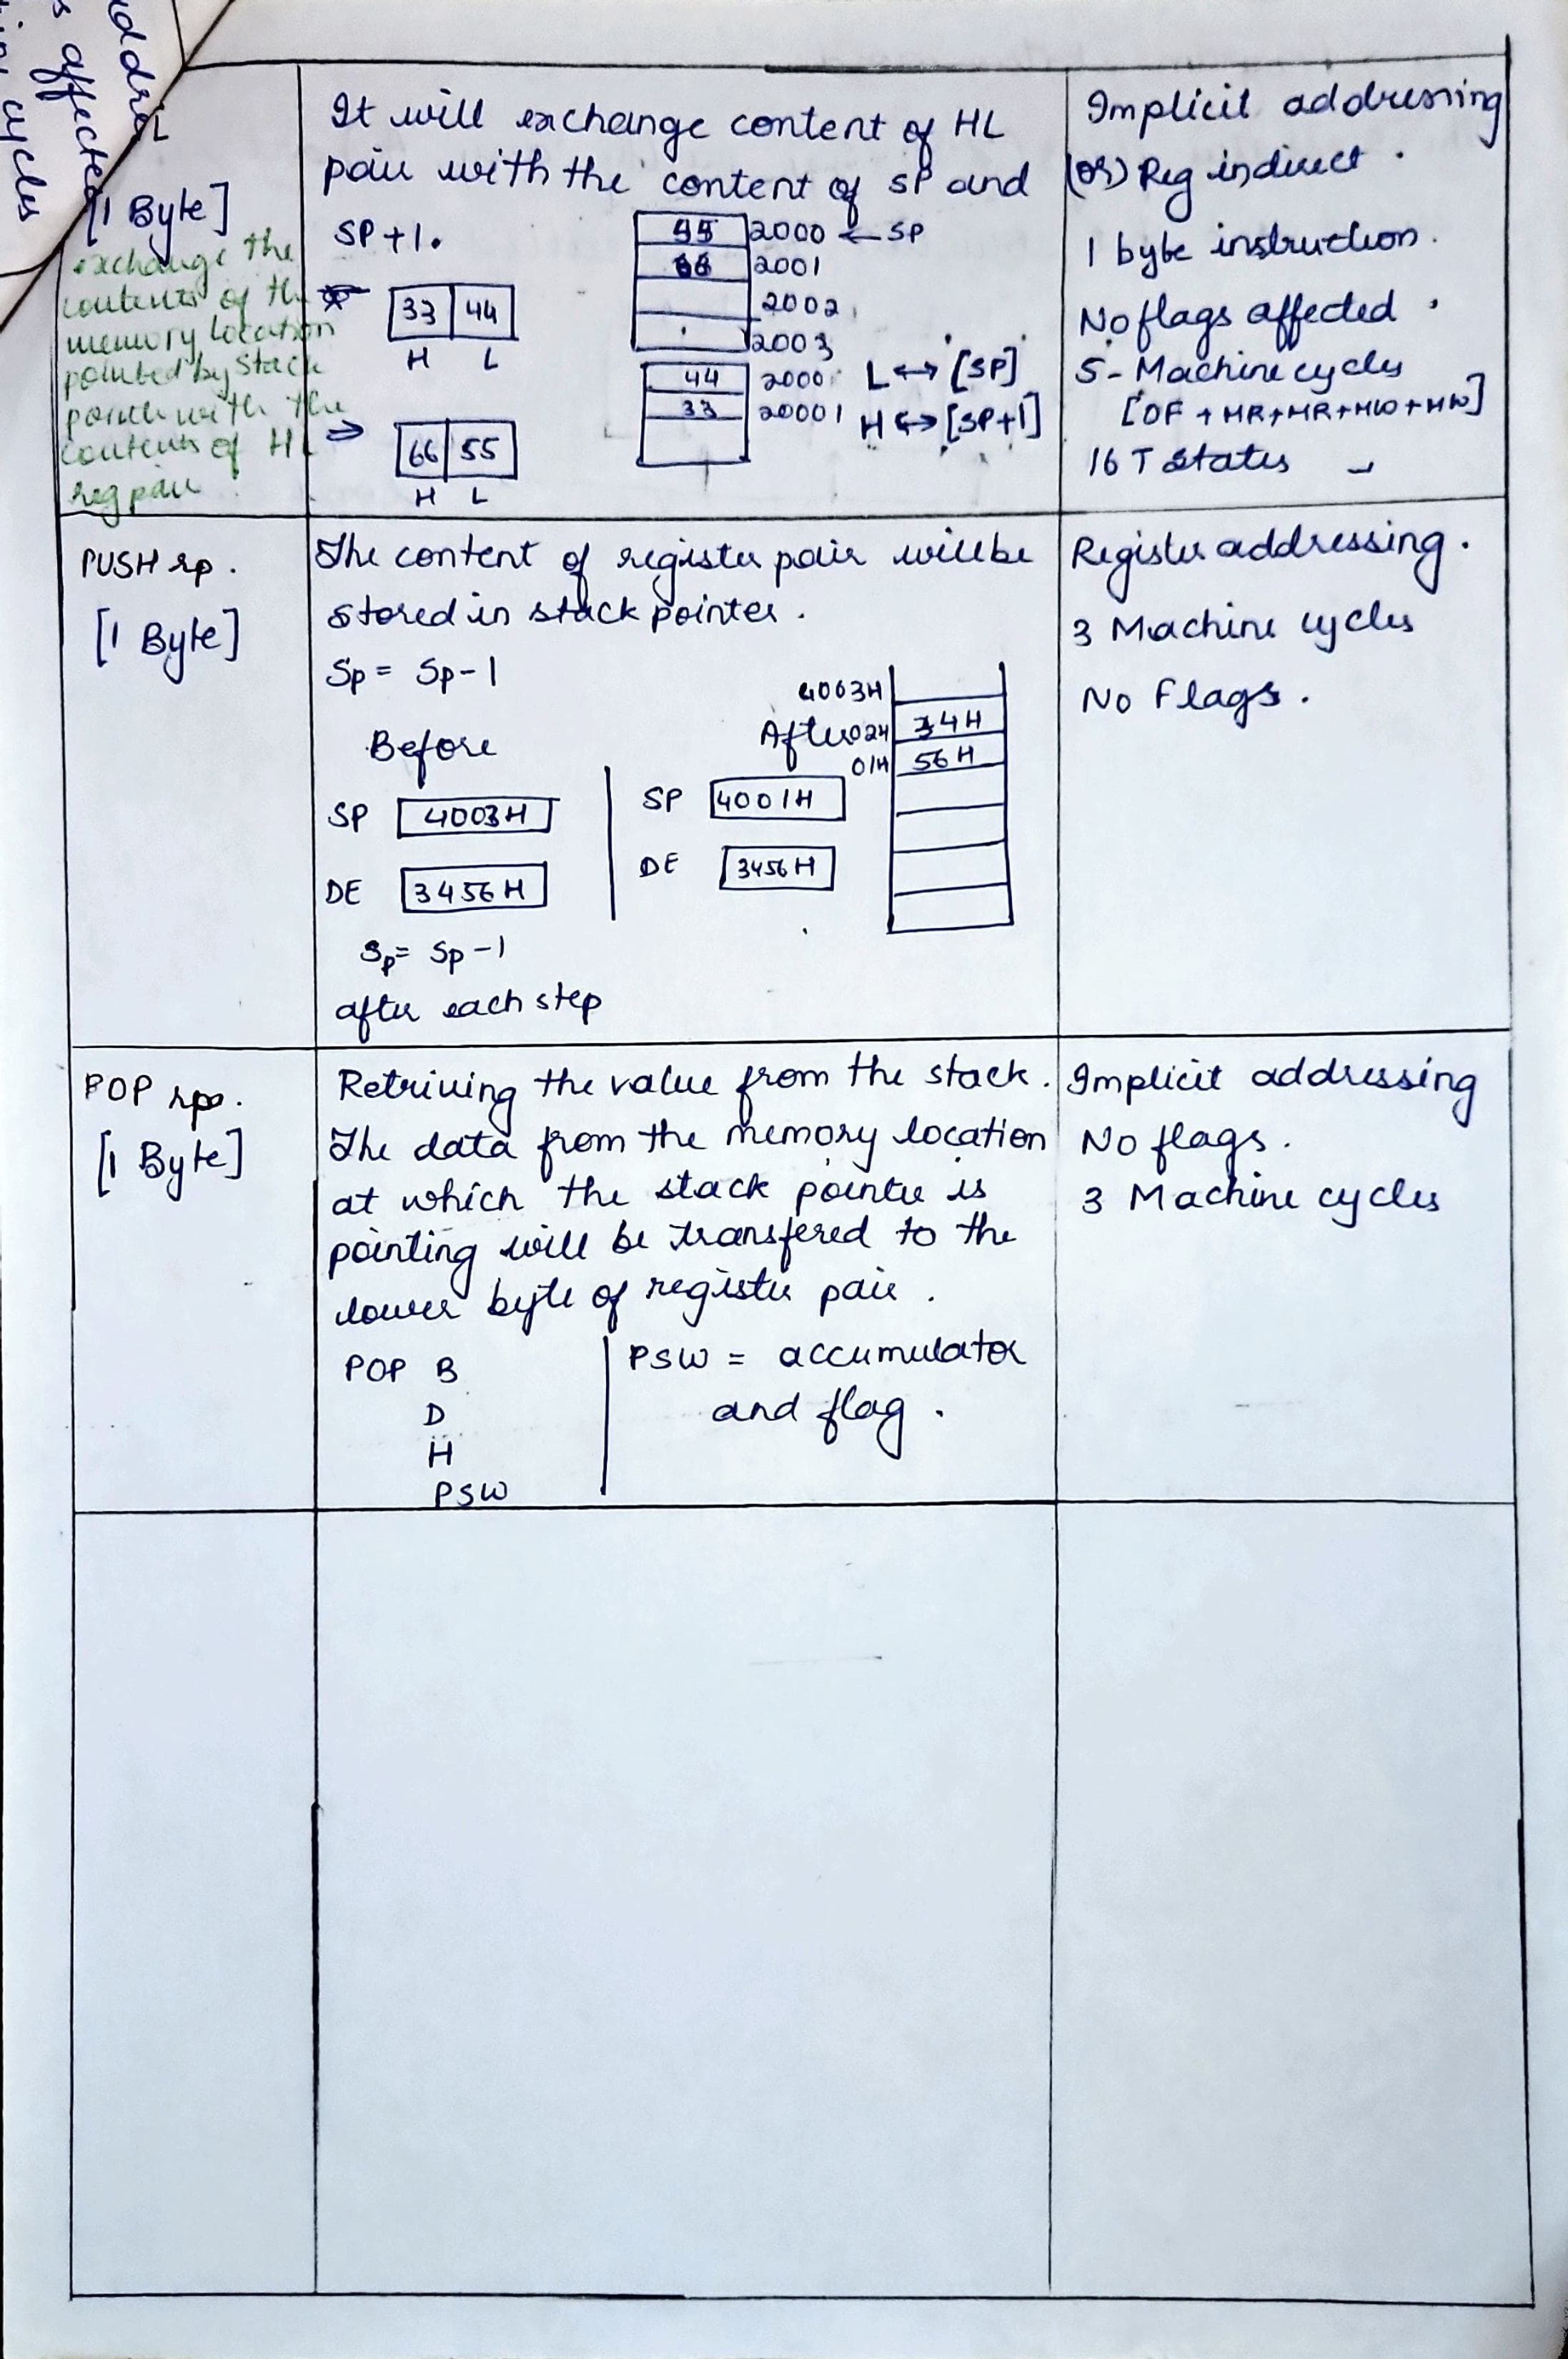 addre
s affected
cycles
L
[1 Byte]
exchange the
contents of the
memory location
pointed by Stack
with the
contents of HL
reg pair
It will exchange content of HL
pair with the content of SP and
SP+1.
55 2000 ← SP
66 2001
2002
2003
33 44
H L
44 2000
33 20001
L ↔ [SP]
H ↔ [SP+1]
⇒ 66 55
H L
Implicit addressing
(or) Reg indirect.
1 byte instruction.
No flags affected.
5 - Machine cycles
[OF + MR + MR + MW + MW]
16 T states
PUSH rp.
[1 Byte]
The content of register pair will be
stored in stack pointer.
Sp = Sp-1
Before
SP 4003H
DE 3456H
Sp = Sp-1
after each step
After
SP 4001H
DE 3456H
4003H
02H 34H
01H 56H
Register addressing.
3 Machine cycles
No Flags.
POP rp.
[1 Byte]
Retriving the value from the stack.
The data from the memory location
at which the stack pointer is
pointing will be transfered to the
lower byte of register pair.
POP B
D
H
PSW
PSW = accumulator
and flag.
Implicit addressing
No flags.
3 Machine cycles